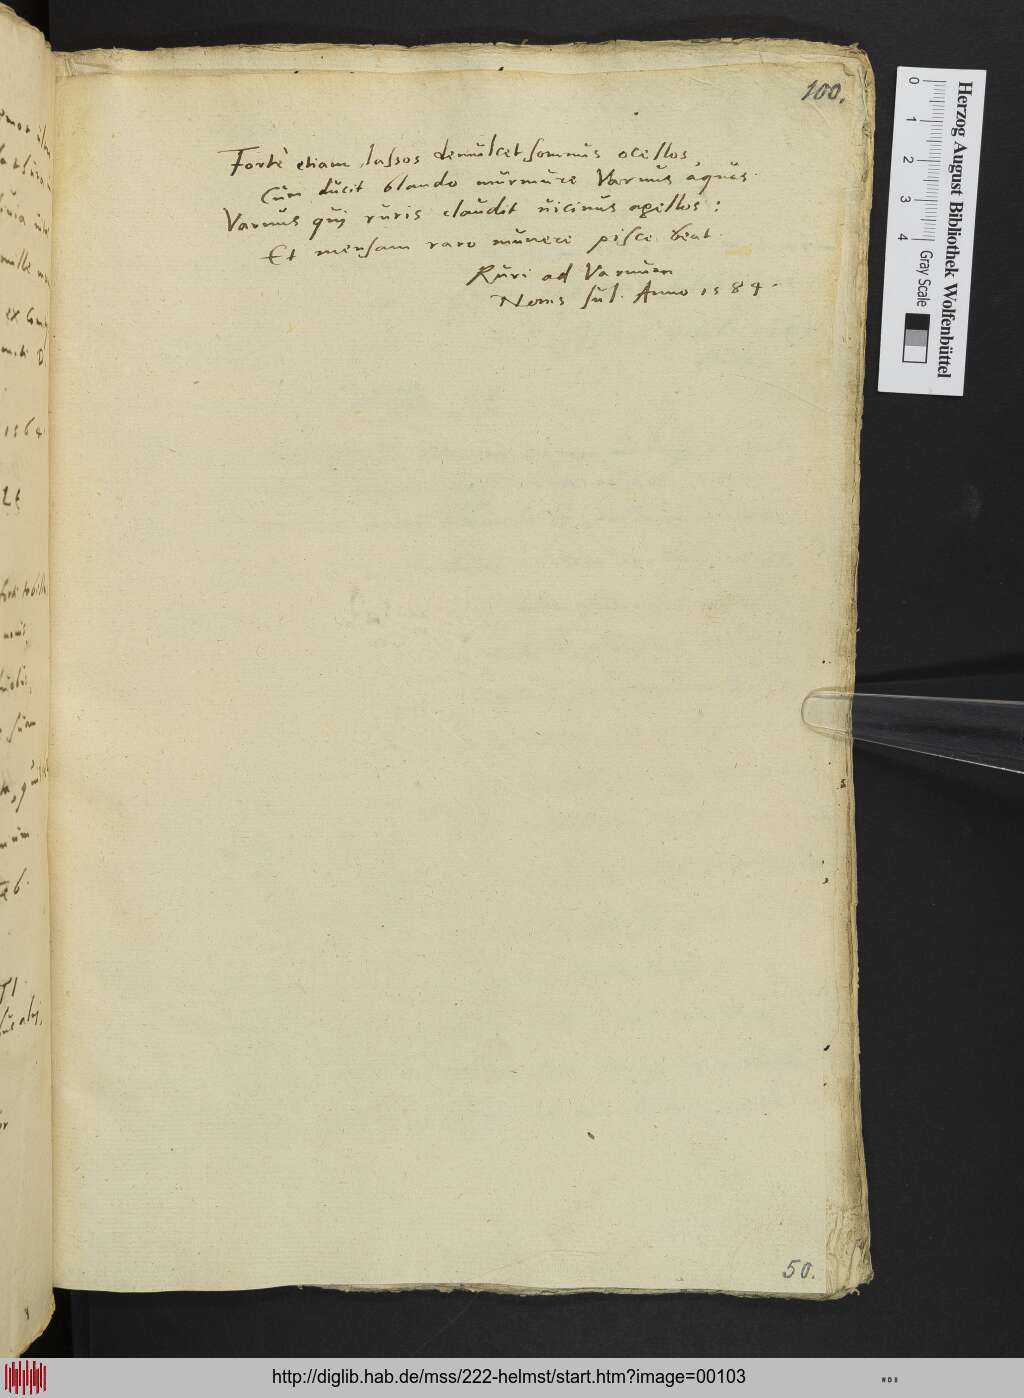 100.
Forte etiam lassos demulcet somnus ocellos,
Cum ducit blando murmure Varmus aquas.
Varmus qui ruris claudit uicinus agellos:
Et mensam raro munere pisce beat.
Ruri ad Varmum
Nonis Jul. Anno 1584.
50.
ex
1564
Herzog August Bibliothek Wolfenbüttel
0 1 2 3 4
Gray Scale
http://diglib.hab.de/mss/222-helmst/start.htm?image=00103